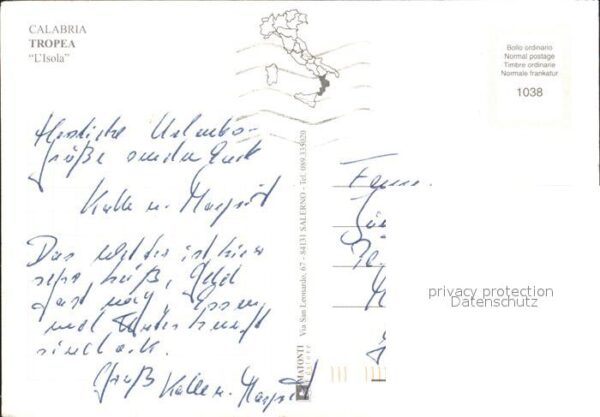 CALABRIA
TROPEA
"L'Isola"
Bollo ordinario
Normal postage
Timbre ordinaire
Normale frankatur
1038
Herzliche Urlaubs-
grüße senden Euch
Kalle u. Margrit
Das Wetter ist hier
sehr heiß,
Essen,
und Unterkunft
sind o.k.
Gruß Kalle u. Margrit
MATONTI
Via San Leonardo, 67 - 84131 SALERNO - Tel. 089.335020
Fam.
privacy protection
Datenschutz